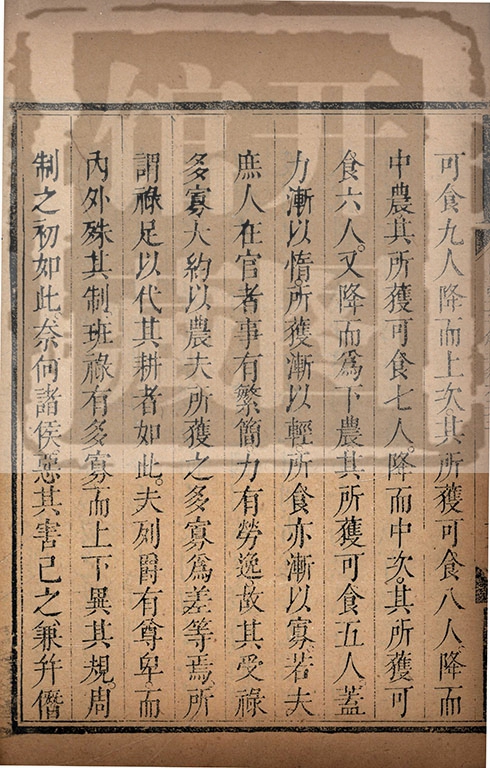 可食九人降而上次其所獲可食八人降而
中農其所獲可食七人降而中次其所獲可
食六人又降而為下農其所獲可食五人蓋
力漸以惰所獲漸以輕所食亦漸以寡若夫
庶人在官者事有繁簡力有勞逸故其受祿
多寡大約以農夫所獲之多寡為差等焉所
謂祿足以代其耕者如此夫列爵有尊卑而
內外殊其制班祿有多寡而上下異其規周
制之初如此奈何諸侯惡其害己之兼并僭